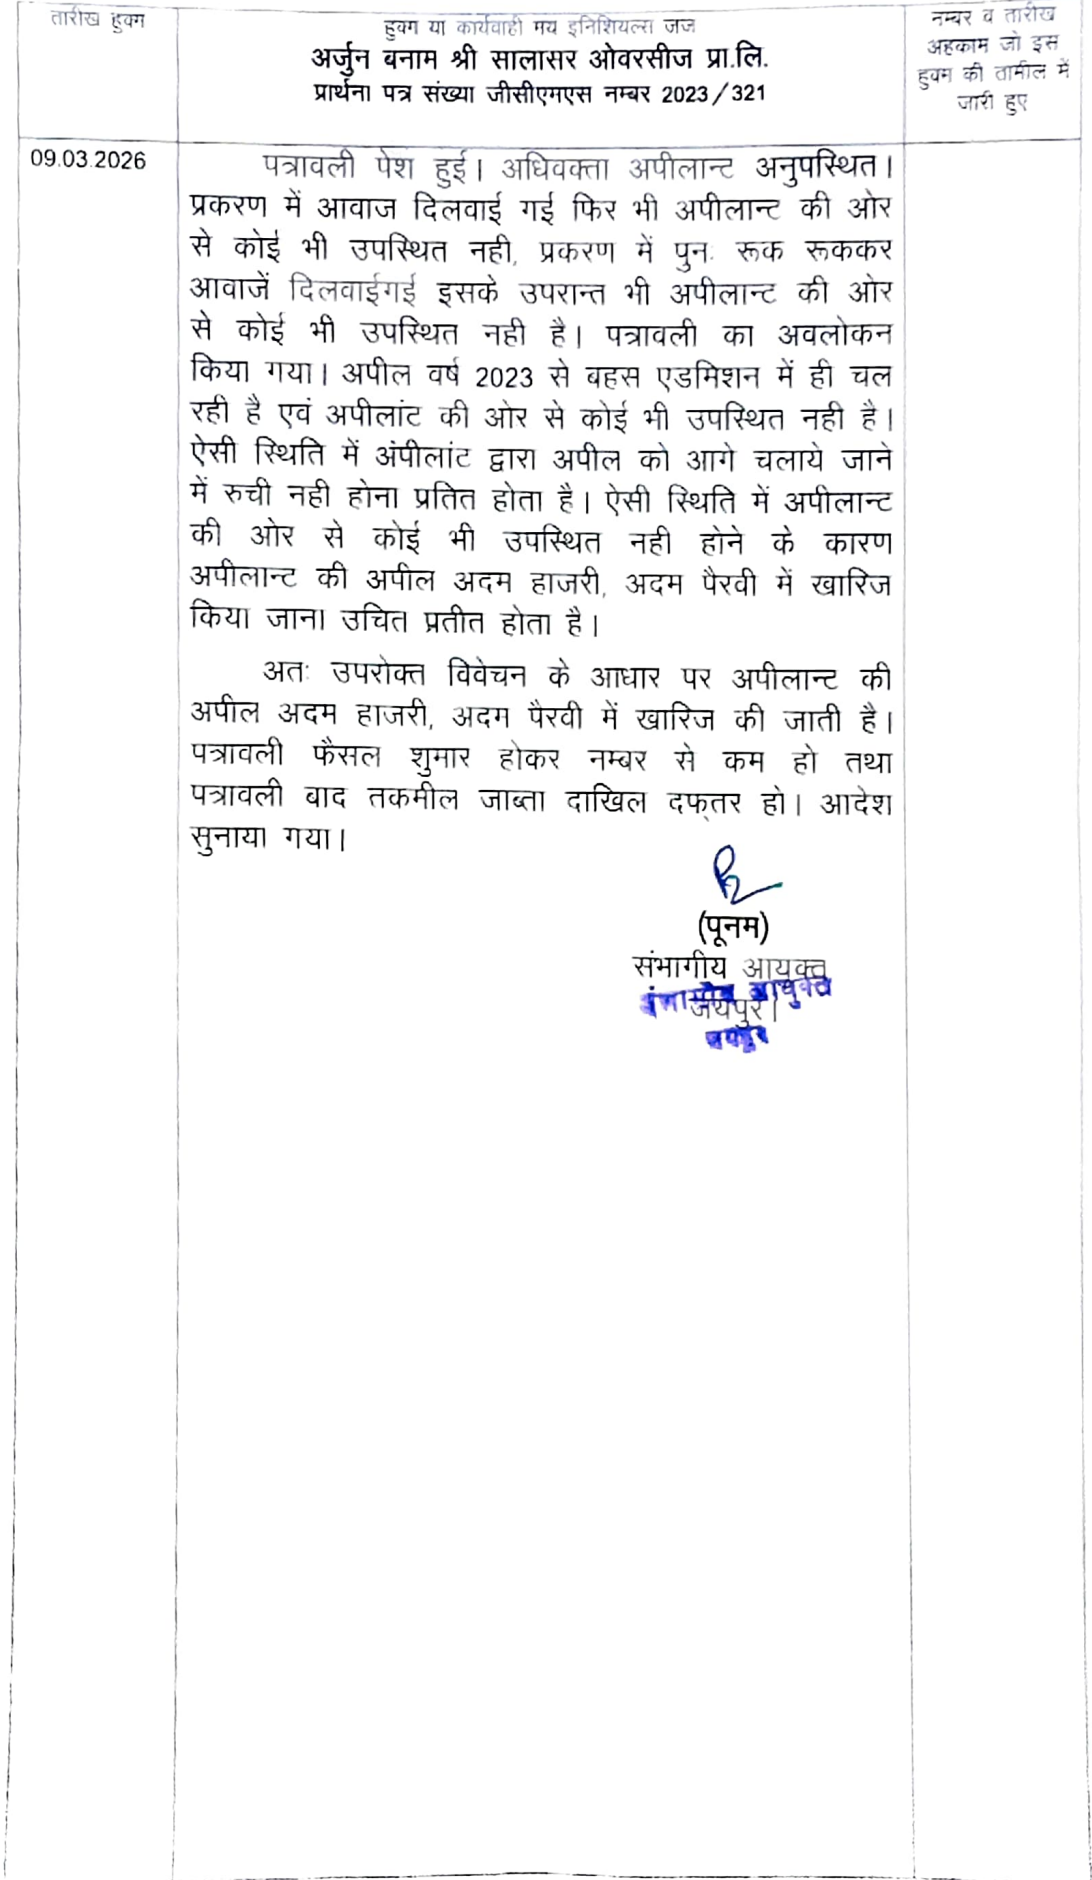 तारीख हुक्म
हुक्म या कार्यवाही मय इनिशियल्स जज
अर्जुन बनाम श्री सालासर ओवरसीज प्रा.लि.
प्रार्थना पत्र संख्या जीसीएमएस नम्बर 2023/321
नम्बर व तारीख
अहकाम जो इस
हुक्म की तामील में
जारी हुए
09.03.2026
पत्रावली पेश हुई। अधिवक्ता अपीलान्ट अनुपस्थित।
प्रकरण में आवाज दिलवाई गई फिर भी अपीलान्ट की ओर
से कोई भी उपस्थित नही, प्रकरण में पुनः रूक रूककर
आवाजें दिलवाईगई इसके उपरान्त भी अपीलान्ट की ओर
से कोई भी उपस्थित नही है। पत्रावली का अवलोकन
किया गया। अपील वर्ष 2023 से बहस एडमिशन में ही चल
रही है एवं अपीलांट की ओर से कोई भी उपस्थित नही है।
ऐसी स्थिति में अंपीलांट द्वारा अपील को आगे चलाये जाने
में रुची नही होना प्रतित होता है। ऐसी स्थिति में अपीलान्ट
की ओर से कोई भी उपस्थित नही होने के कारण
अपीलान्ट की अपील अदम हाजरी, अदम पैरवी में खारिज
किया जाना उचित प्रतीत होता है।
अतः उपरोक्त विवेचन के आधार पर अपीलान्ट की
अपील अदम हाजरी, अदम पैरवी में खारिज की जाती है।
पत्रावली फैसल शुमार होकर नम्बर से कम हो तथा
पत्रावली बाद तकमील जाब्ता दाखिल दफ्तर हो। आदेश
सुनाया गया।
(पूनम)
संभागीय आयुक्त
संभागीय आयुक्त
जयपुर।
जयपुर